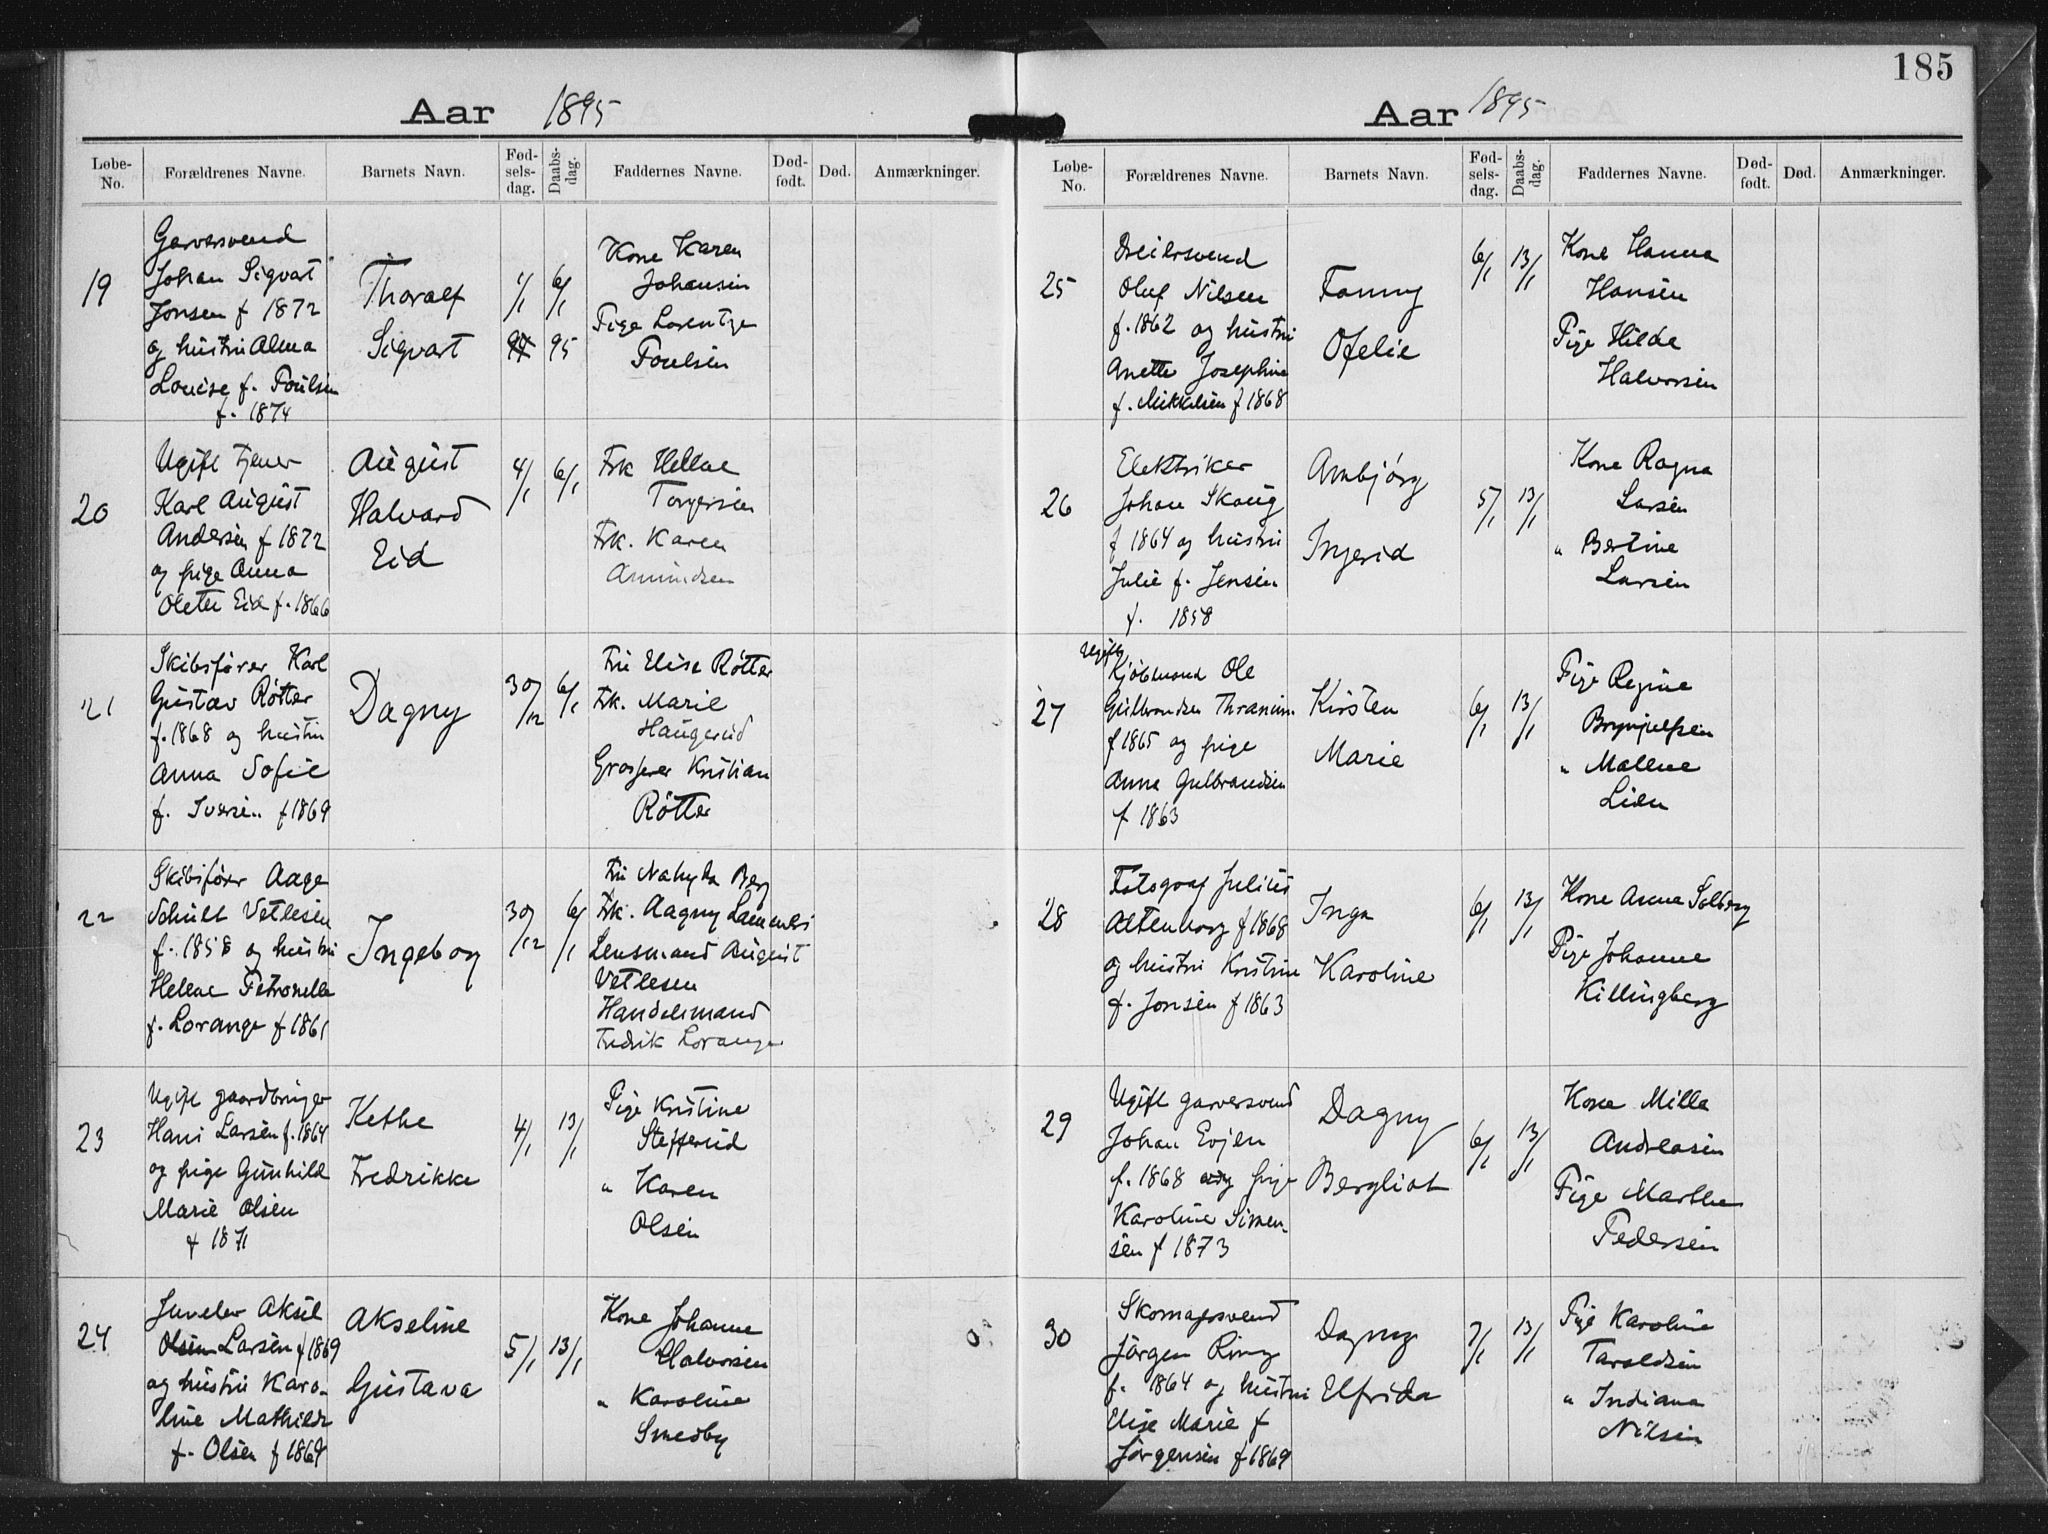 Aar 1895
Løbe-
No.
Forældrenes Navne.
Barnets Navn.
Fød-
sels-
dag.
Daabs-
dag.
Faddernes Navne.
Død-
født.
Død.
Anmærkninger.
19
Garversvend
Johan Sigvart
Jonsen f 1872
og hustru Alma
Louise f. Poulsen
f. 1874
Thoralf
Sigvart
1/1
6/1
95
Kone Karen
Johansen
Pige Lorentze
Poulsen
20
Ugift tjener
Karl August
Andersen f 1872
og pige Anna
Olette Eid f. 1866
August
Halvard
Eid
4/1
6/1
Frk Hellne
Torgersen
Frk. Karen
Amundsen
21
Skibsfører Karl
Gustav Rötter
f. 1868 og hustru
Anna Sofie
f. Iversen f 1869
Dagny
30/12
6/1
Fru Elise Rötter
Frk. Marie
Haugerud
Grosserer Kristian
Rötter
22
Skibsfører Aage
Schult Vetlesen
f. 1858 og hustru
Helene Petronelle
f. Lorange f 1861
Ingeborg
30/12
6/1
Fru Berg
Frk. Aagny
Lensmand August
Vetlesen
Handelsmand
Fredrik Lorange
23
Ugift gaardbruger
Hans Larsen f. 1864
og pige Gunhild
Marie Olsen
f 1871
Kethe
Fredrikke
4/1
13/1
Pige Kristine
Stefferud
" Karen
Olsen
24
Juveler Aksel
Olsen Larsen f 1869
og hustru Karo-
line Mathilde
f. Olsen f 1869
Akseline
Gustava
5/1
13/1
Kone Johanne
Halvorsen
" Karoline
Smedby
185
Aar 1895
Løbe-
No.
Forældrenes Navne.
Barnets Navn.
Fød-
sels-
dag.
Daabs-
dag.
Faddernes Navne.
Død-
født.
Død.
Anmærkninger.
25
Dreiersvend
Oluf Nilsen
f. 1862 og hustru
Anette Josephine
f. Mikkelsen f 1868
Fanny
Ofelie
6/1
13/1
Kone Hanna
Hansen
Pige Hilda
Halvorsen
26
Elektriker
Johan Skaug
f 1864 og hustru
Julie f. Jensen
f. 1858
Arnbjörg
Ingerid
5/1
13/1
Kone Ragna
Larsen
" Bertine
Larsen
27
ugift
Kjöbmand Ole
Gulbrandsen
f 1865 og pige
Anna Gulbrandsen
f 1863
Kirsten
Marie
6/1
13/1
Pige Regine
Brynjulfsen
" Mallene
Lien
28
Fotograf Julius
Altenborg f 1868
og hustru Kristine
f. Jonsen f 1863
Inga
Karoline
6/1
13/1
Kone Anna Solberg
Pige Johanne
Killingberg
29
Ugift garversvend
Johan Evjen
f. 1868 og pige
Karoline Simen-
sen f 1873
Dagny
Bergliot
6/1
13/1
Kone Milla
Andreasen
Pige Marthe
Pedersen
30
Skomagersvend
Jörgen Ring
f. 1864 og hustru
Elise Marie f
Jörgensen f 1869
Dagny
Elfrida
7/1
13/1
Pige Karoline
Taraldsen
" Indiana
Nilsen